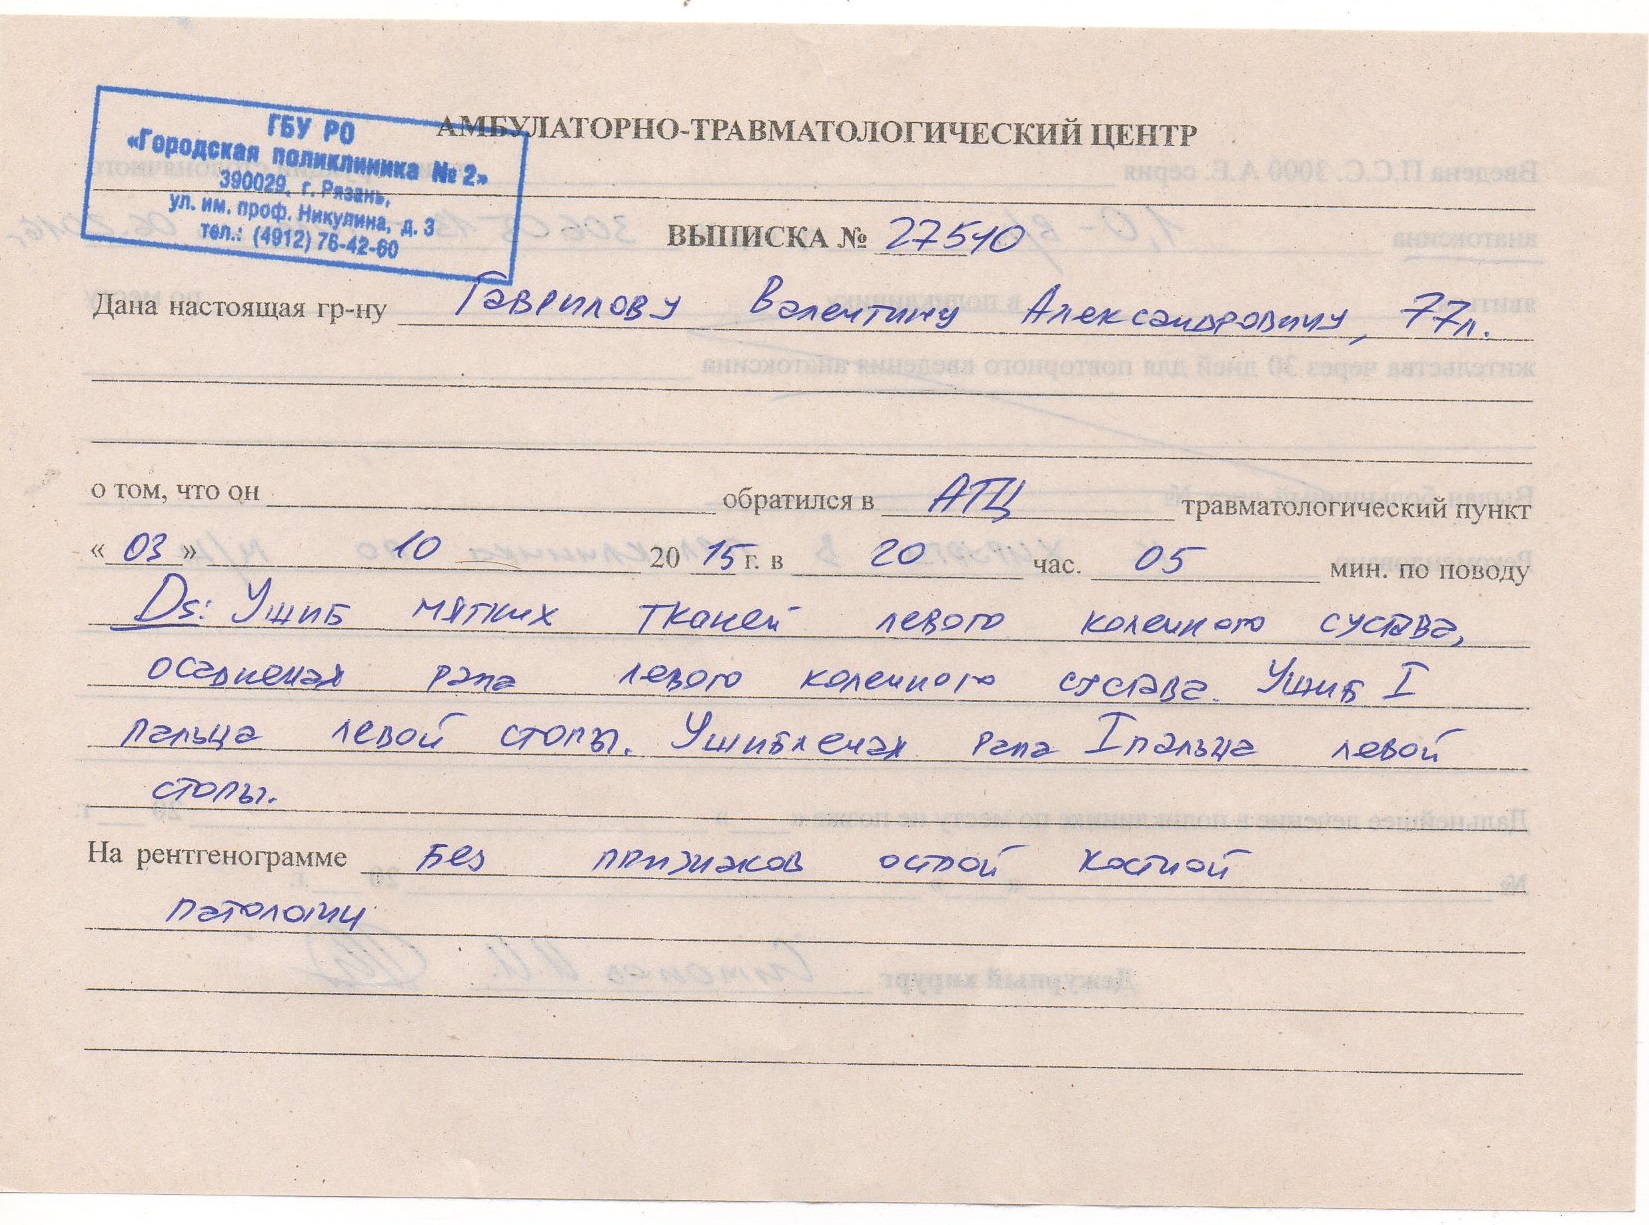 ГБУ РО
«Городская поликлиника № 2»
390029, г. Рязань,
ул. им. проф. Никулина, д. 3
тел.: (4912) 76-42-60
АМБУЛАТОРНО-ТРАВМАТОЛОГИЧЕСКИЙ ЦЕНТР
ВЫПИСКА № 27540
Дана настоящая гр-ну Гаврилову Валентину Александровичу, 77л.
о том, что он обратился в АТЦ травматологический пункт
« 03 » 10 20 15 г. в 20 час. 05 мин. по поводу
Ds: Ушиб мягких тканей левого коленного сустава,
осадненая рана левого коленного сустава. Ушиб I
пальца левой стопы. Ушибленая рана I пальца левой
стопы.
На рентгенограмме без признаков острой костной
патологии